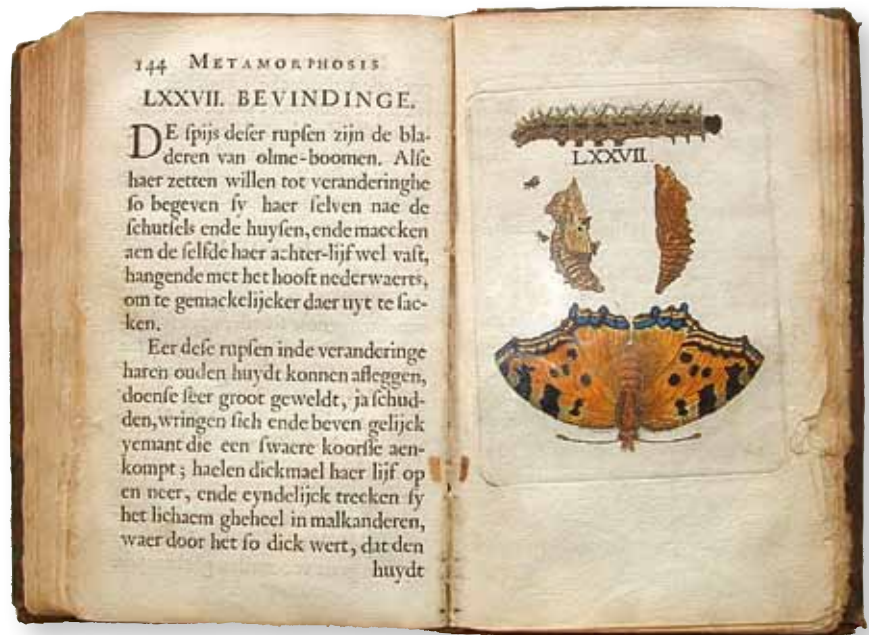 144 METAMORPHOSIS
LXXVII. BEVINDINGE.
DE ſpijs deſer rupſen zijn de bla-
deren van olme-boomen. Alſe
haer zetten willen tot veranderinghe
ſo begeven ſy haer ſelven nae de
ſchutſels ende huyſen, ende maecken
aen de ſelfde haer achter-lijf wel vaſt,
hangende met het hooft nederwaerts,
om te gemackelijcker daer uyt te ſac-
ken.
Eer deſe rupſen inde veranderinge
haren ouden huydt konnen afleggen,
doenſe ſeer groot geweldt, ja ſchud-
den, wringen ſich ende beven gelijck
yemant die een ſwaere koorſſe aen-
kompt; haelen dickmael haer lijf op
en neer, ende eyndelijck trecken ſy
het lichaem gheheel in malkanderen,
waer door het ſo dick wert, dat den
huydt
LXXVII.